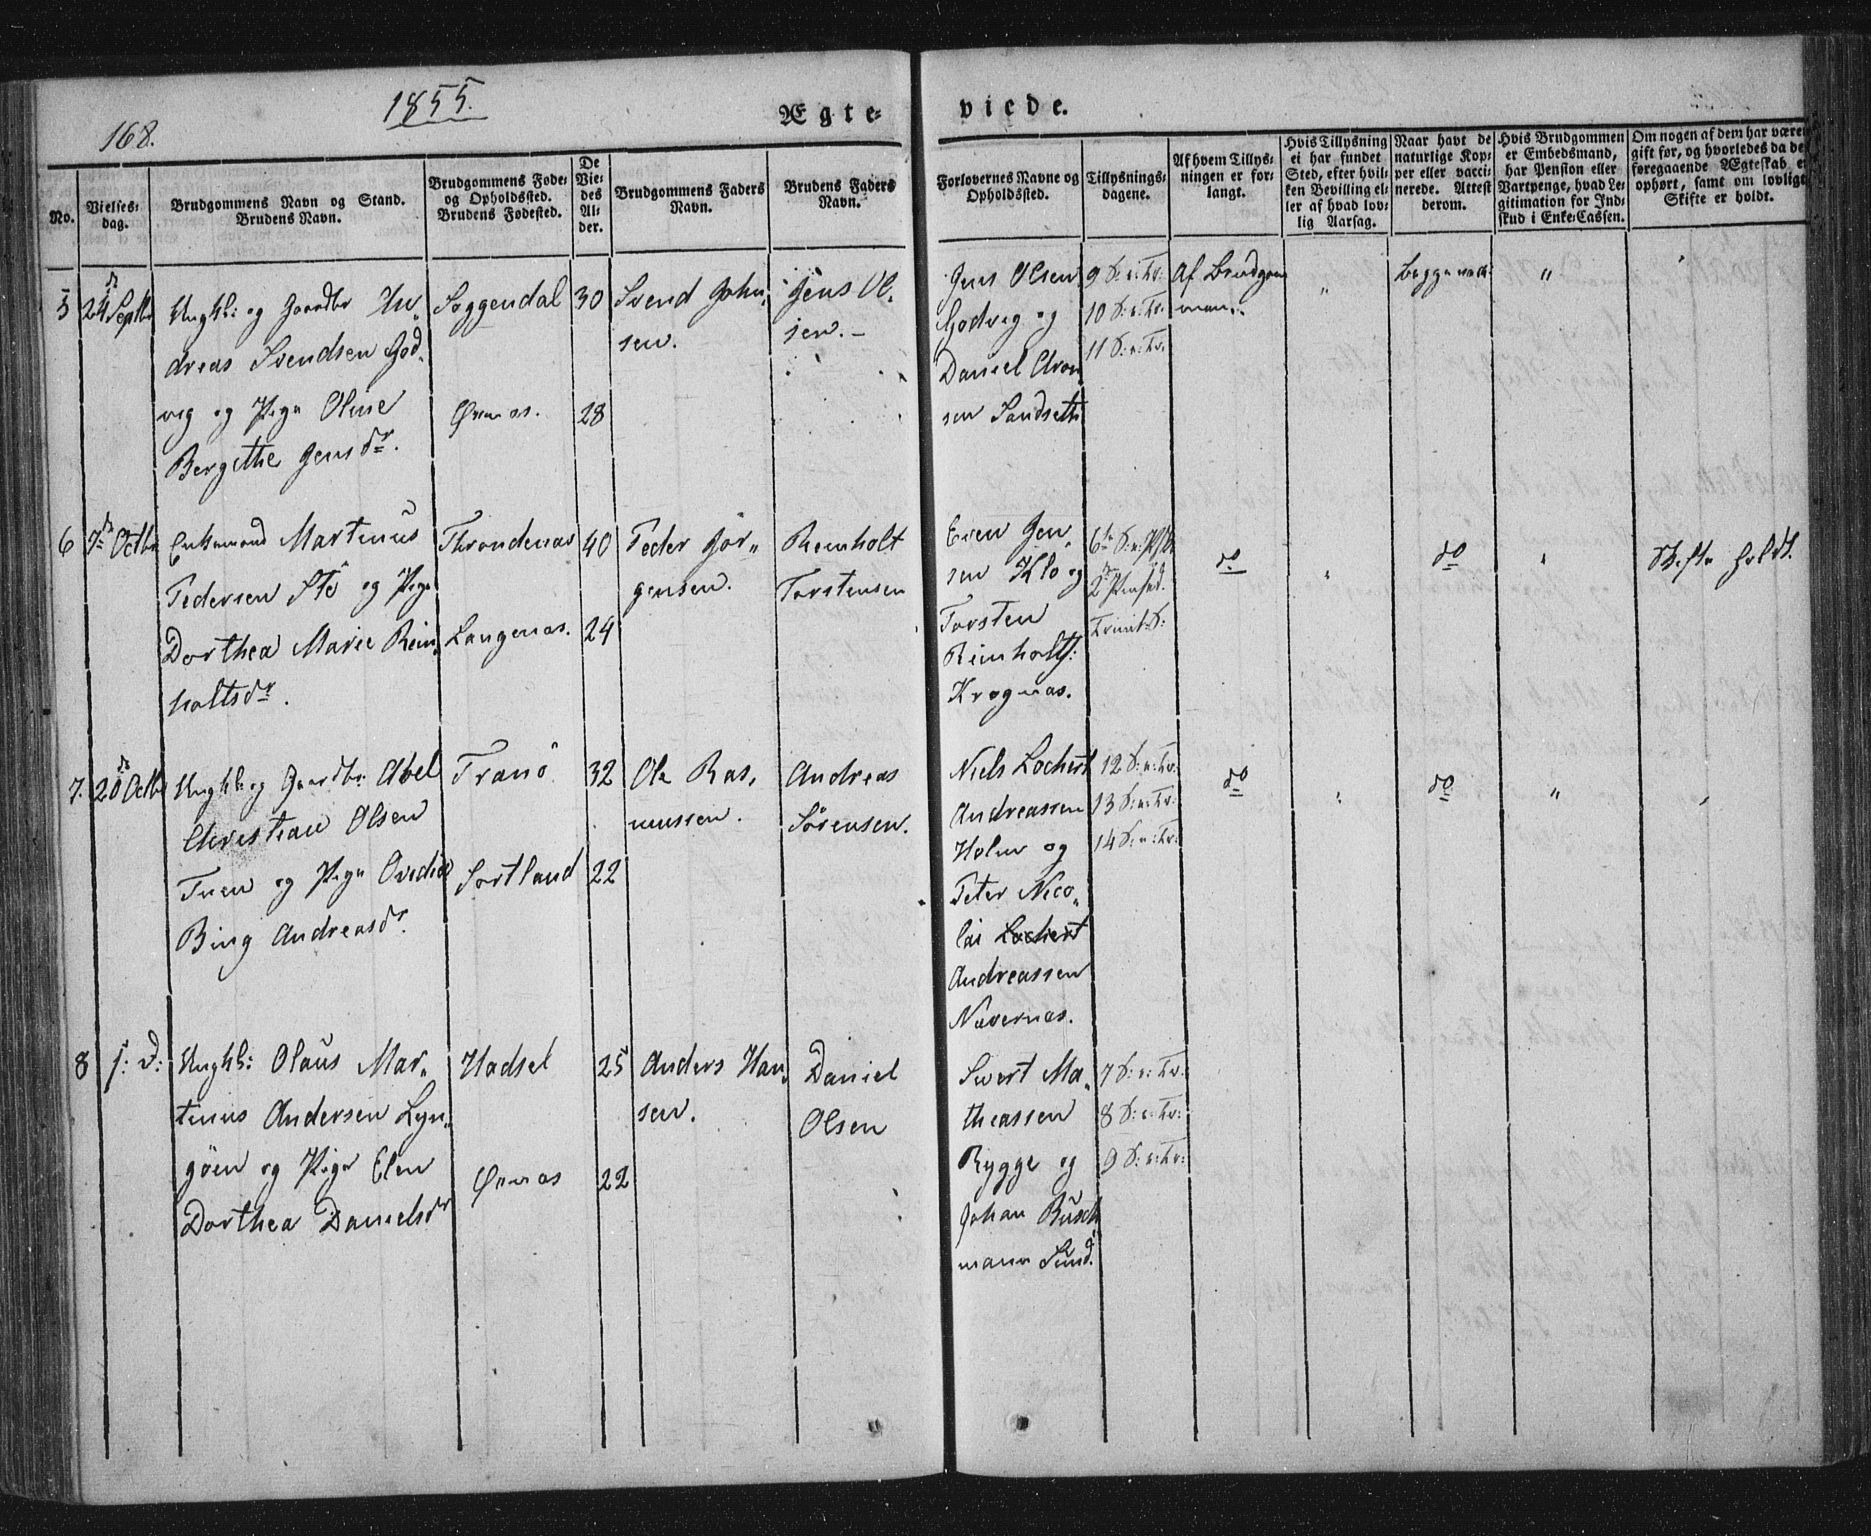 168.
1855.
Ægte-
viede.
No.
Vielses-
dag.
Brudgommens Navn og Stand.
Brudens Navn.
Brudgommens Føde-
og Opholdssted.
Brudens Fødested.
De
Vie-
des
Al-
der.
Brudgommens Faders
Navn.
Brudens Faders
Navn.
Forlovernes Navne og
Opholdssted.
Tillysnings-
dagene.
Af hvem Tillys-
ningen er for-
langt.
Hvis Tillysning
ei har fundet
Sted, efter hvil-
ken Bevilling el-
ler af hvad lov-
lig Aarsag.
Naar havt de
naturlige Kop-
per eller vacci-
nerede. Attest
derom.
Hvis Brudgommen
er Embedsmand,
har Pension eller
Vartpenge, hvad Le-
gitimation for Ind-
skud i Enke-Cassen.
Om nogen af dem har været
gift før, og hvorledes da de
foregaaende Ægteskab er
ophørt, samt om lovligt
Skifte er holdt.
5
24 Septbr
Ungk: og Gaardbr An-
dreas Svendsen God-
veg og Pige Oline
Bergithe Jensdr.
Soggendal
Øxnæs.
30
28
Svend John-
sen.
Jens Ol-
sen.
Jens Olsen
Godveg og
Daniel Aron
sen Sandseth
9 S: e: Tr:
10 S: e: Tr:
11 S: e: Tr:
Af Brudgom
men.
"
Begge vacc:
"
"
6
7de Octbr
Enkemand Martinus
Pedersen Stö og Pige
Dorthea Marie Rein-
holtsdr.
Throndenæs
Langenæs.
40
24
Peder Jör-
gensen.
Reinholt
Torstensen
Even Jen-
sen Klo og
Torsten
Reinholts:
Krognæs.
6te S. e. Psk:
2den Pintsed.
Trinit. S:
do
"
do
"
Skifte holdt.
7.
20 Octbr
Ungk: og Gaardbr: Abel
Christian Olsen
Tuen og Pige Ovedia
Bing Andreasdr.
Tranö
Sortland
32
22
Ole Ras-
mussen.
Andreas
Sörensen.
Niels Lochert
Andreassen
Holm og
Peter Nico-
lai Lochert
Andreassen
Navernæs.
12 S: e: Tr:
13 S: e: Tr:
14 S: e: Tr:
do
"
do
"
"
8
s: D:
Ungk: Olaus Mar-
tinus Andersen Lyn-
göen og Pige Elen
Dorthea Danielsdr
Hadsel
Øxnæs
25
22
Anders Han-
sen.
Daniel
Olsen
Sivert Ma-
theassen
Rygge og
Johan Busch
mann Sund.
7 S: e: Tr:
8 S: e: Tr:
9 S: e: Tr: